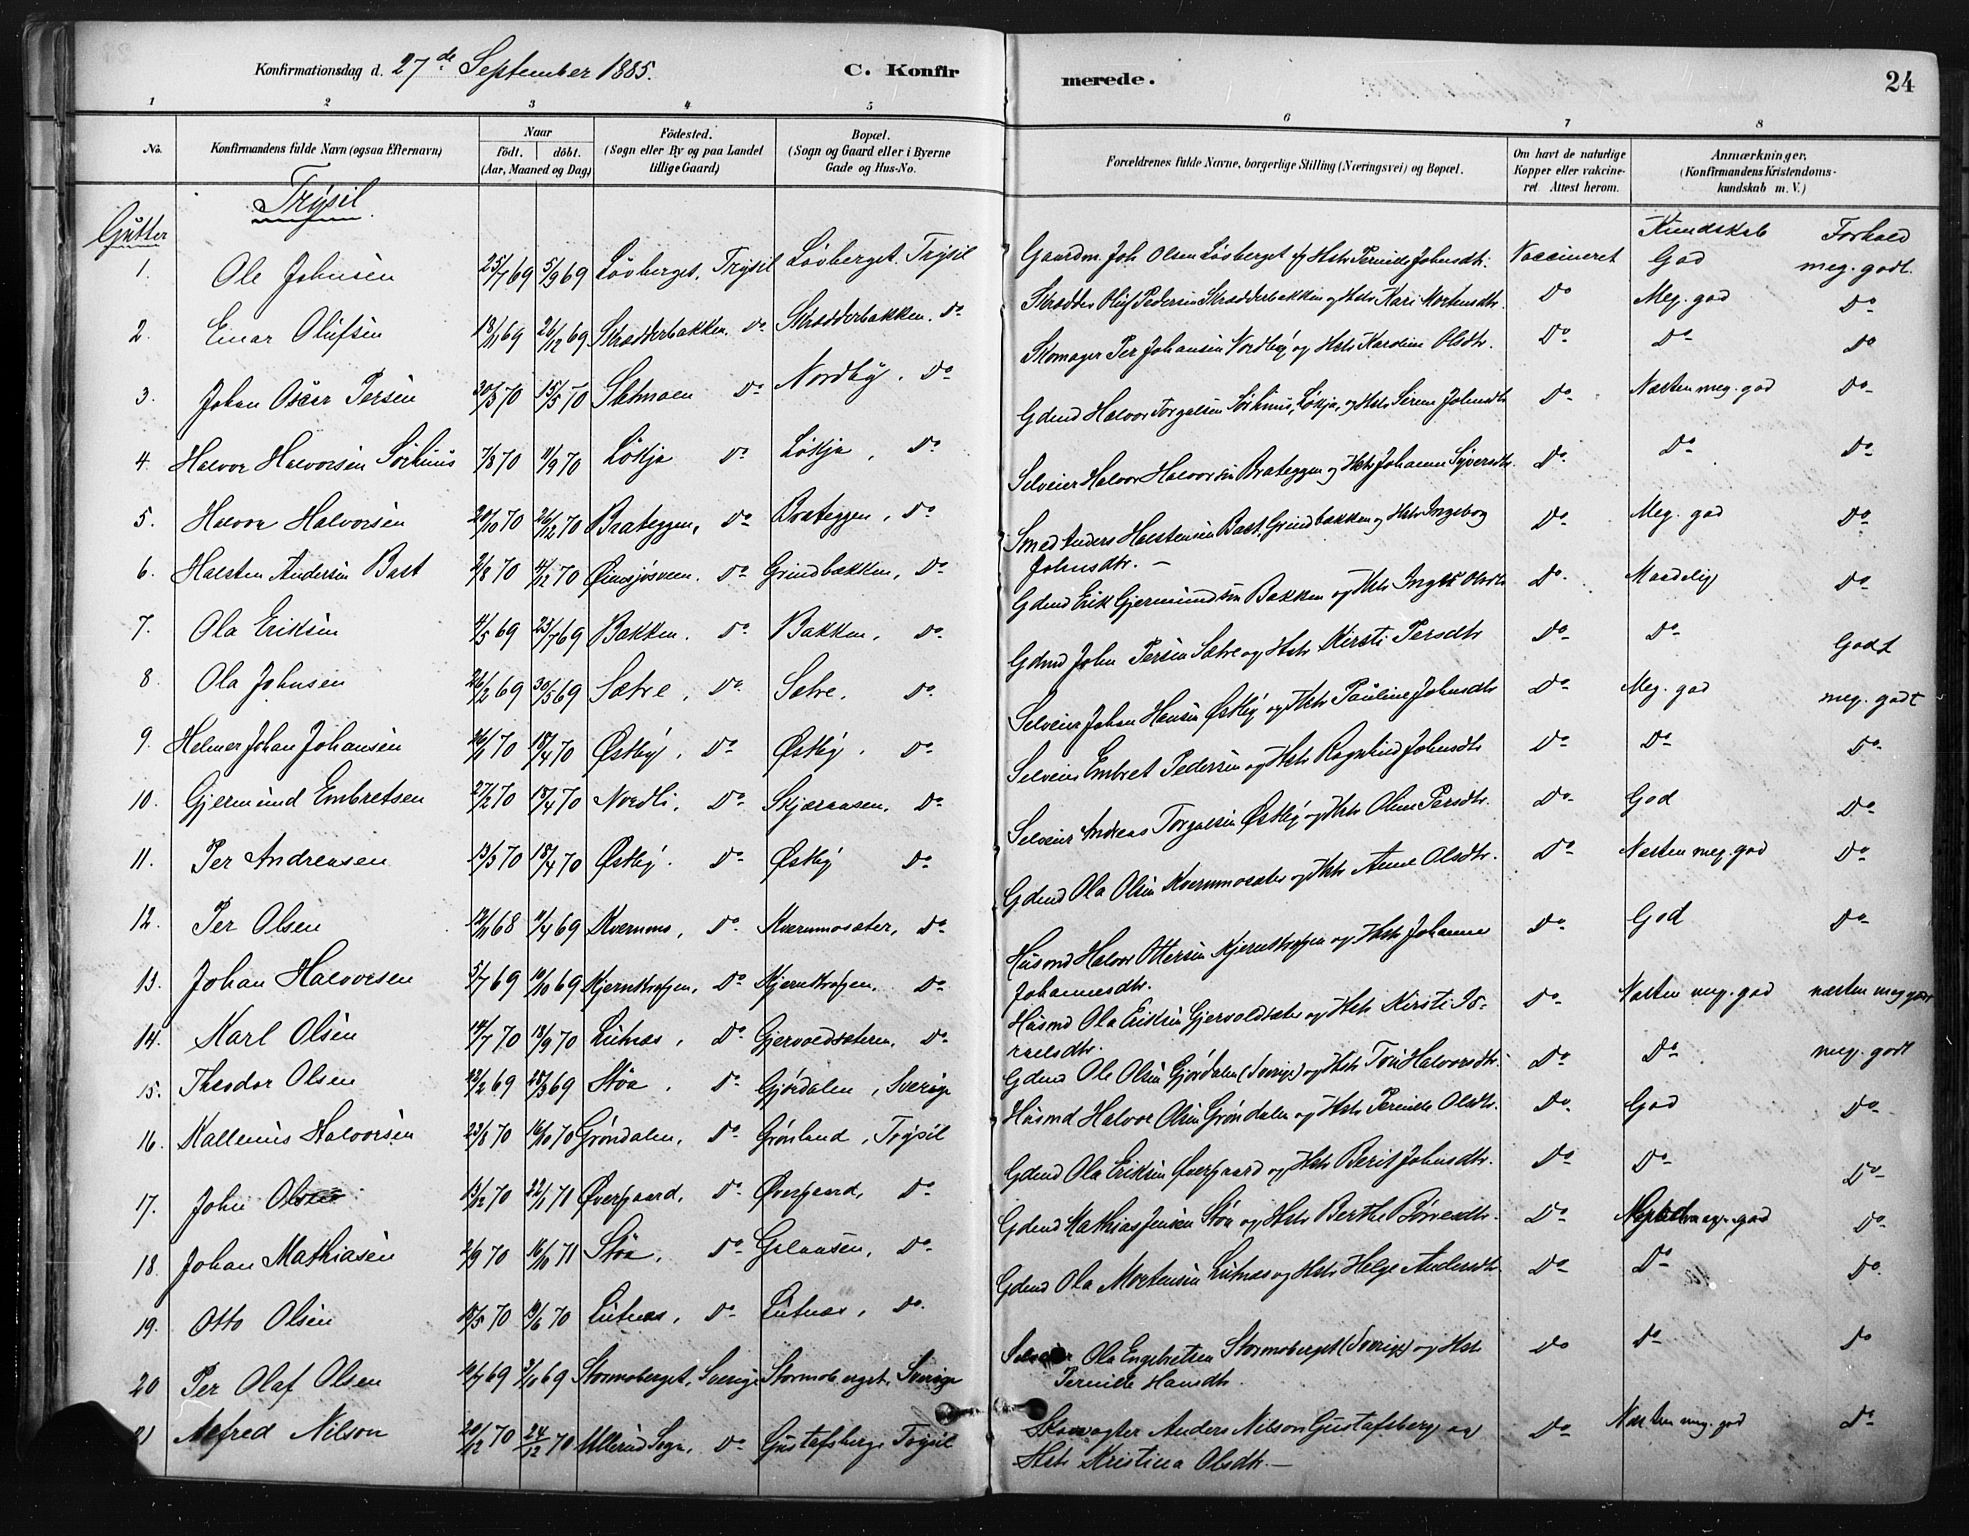 Konfirmationsdag d. 27de September 1885. C. Konfirmerede. 24
1 2 3 4 5 6 7 8
No. Konfirmandens fulde Navn (ogsaa Efternavn) Naar födt. döbt. (Aar, Maaned og Dag) Födested. (Sogn eller By og paa Landet tillige Gaard) Bopæl. (Sogn og Gaard eller i Byerne Gade og Hus-No. Forældrenes fulde Navne, borgerlige Stilling (Næringsvei) og Bopæl. Om havt de naturlige Kopper eller vakcineret. Attest herom. Anmærkninger, (Konfirmandens Kristendomskundskab m. V.)
Trysil
Gutter Kundskab Forhold
1. Ole Johnsen 25/7 69 5/9 69 Løvberget, Trysil Løvberget, Trysil Gaardm. Joh Olsen Løvberget og Hstr Pernille Johnsdtr. Vaccineret God meg. godt.
2. Einar Olufsen 18/11 69 26/12 69 Skrædderbakken. Do Skrædderbakken. Do Skrædder Oluf Pedersen Skrædderbakken og Hstr Kari Mortensdtr. Do Meg. god Do
3. Johan Oscar Persen 20/3 70 15/5 70 Sætmoen Do Nordby, Do Skomager Per Johansen Nordby og Hstr Karoline Olsdtr. Do Do Do
4. Halvor Halvorsen Sörhuus 7/8 70 11/9 70 Løkja Do Løkja, Do Gdmd Halvor Torgalsen Sörhuus, Løkja, og Hstr Serine Johnsdtr Do Næsten meg. god Do
5. Halvor Halvorsen 20/10 70 26/12 70 Brateggen, Do Brateggen, Do Selveier Halvor Halvorsen Brateggen og Hstr Johanne Syversdtr. Do Do Do
6. Halsten Andersen Bast 2/8 70 4/12 70 Do Grindbakken, Do Smed Anders Halstensen Bast, Grindbakken og Hstr Ingeborg Johnsdtr. — Do Meg. god Do
7. Ola Eriksen 4/5 69 23/7 69 Bakken. Do Bakken, Do Gdmd Erik Gjermundsen Bakken og Hstr Olsdtr Do Maadelig Do
8. Ola Johnsen 26/2 69 30/5 69 Sætre, Do Sætre, Do Gdmd John Persen Sætre og Hstr Kirsti Persdtr Do Do Godt
9. Helmer Johan Johansen 16/1 70 18/4 70 Østby, Do Østby. Do Selveier Johan Hansen Østby og Hstr Pauline Johnsdtr Do Meg. god meg. godt
10. Gjermund Embretsen 27/2 70 18/4 70 Nordli, Do Skjæraasen, Do Selveier Embret Pedersen og Hstr Ragnhild Johnsdtr Do Do Do
11. Per Andreasen 13/3 70 18/4 70 Østby. Do Østby Do Selveier Andreas Torgalsen Østby og Hstr Oline Persdtr. Do God Do
12. Per Olsen 12/11 68 11/4 69 Kvernmo, Do Kvernmosæter, Do Gdmd Ola Olsen Kvernmosæter og Hstr Anne Olsdtr. Do Næsten meg. god Do
13. Johan Halvorsen 5/7 69 10/10 69 Do Do Husmd Halvor Ottersen og Hstr Johanne Johannesdtr. Do God Do
14. Karl Olsen 14/7 70 18/9 70 Lutnæs, Do Gjervoldsæteren, Do Husmd Ola Eriksen Gjervoldsæter og Hstr Kirsti Israelsdtr. Do Næsten meg. god næsten meg godt
15. Theodor Olsen 12/2 69 28/3 69 Støa, Do Gjördalen, Sverige Gdmd Ole Olsen Gjördalen (Sverige) og Hstr Toni Halvorsdtr. Do Do meg. godt
16. Kallenius Halvorsen 23/8 70 16/10 70 Gröndalen, Do Grønland, Trysil Husmd Halvor Olsen Gröndalen og Hstr Pernille Olsdtr. Do God Do
17. John Olsen 13/12 70 22/1 71 Øvergaard, Do Øvergaard, Do Gdmd Ola Eriksen Øvergaard og Hstr Berit Johnsdtr. Do Do Do
18. Johan Mathiasen 2/9 70 16/10 71 Støa, Do Galaasen, Do Gdmd Mathias Jensen Støa og Hstr Berthe Börresdtr. Do meg. god Do
19. Otto Olsen 10/5 70 19/6 70 Lutnæs, Do Lutnæs, Do. Gdmd Ola Mortensen Lutnæs og Hstr Helge Andersdtr Do Do Do.
20 Per Olaf Olsen 10/7 69 3/10 69 Stormoberget, Sverige Stormoberget, Sverige Selveier Ola Engebretsen Stormoberget (Sverige) og Hstr Pernille Hansdtr. Do Do Do
21 Alfred Nilson 20/12 70 24/12 70 Ullerud Sogn, Do Gustafsberg Trysil Skovvogter Anders Nilson Gustafsberg og Hstr Kristina Olsdtr. — Do Næsten meg. god Do